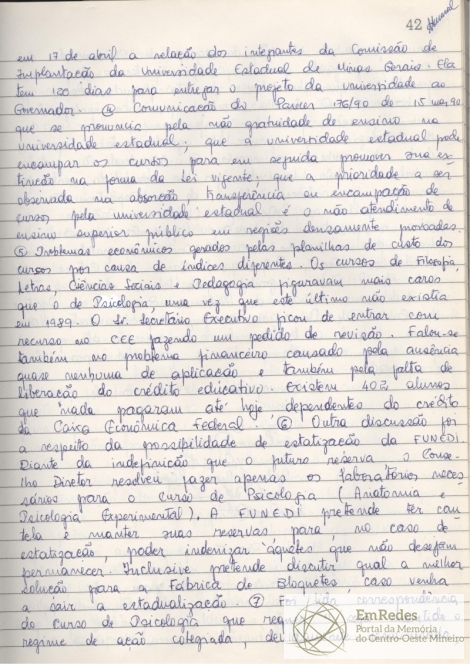 42
em 17 de abril a relação dos integantes da Comissão de
Implantação da Universidade Estadual de Minas Gerais. Ela
tem 120 dias para entregar o projeto da universidade ao
Governador. ④ Comunicação do Parecer 176/90 de 15
que se pronuncia pela não gratuidade de ensino na
universidade estadual; que a universidade estadual pode
encampar os cursos para em seguida promover sua ex-
tinção na forma da lei vigente; que a prioridade a ser
observada na absorção transferência ou encampação de
cursos pela universidade estadual é o não atendimento de
ensino superior público em regiões densamente povoadas.
⑤ Problemas econômicos gerados pelas planilhas de custo dos
cursos por causa de índices diferentes. Os cursos de Filosofia,
Letras, Ciências Sociais e Pedagogia figuravam mais caros
que o de Psicologia, uma vez que este último não existia
em 1989. O Sr. Secretário Executivo ficou de entrar com
recurso no CEE fazendo um pedido de revisão. Falou-se
também no problema financeiro causado pela ausência
quase nenhuma de aplicação e também pela falta de
liberação do crédito educativo. Existem 402 alunos
que nada pagaram até hoje, dependentes do crédito
da Caixa Econômica Federal. ⑥ Outra discussão foi
a respeito da possibilidade de estatização da FUNEDI
Diante da indefinição que o futuro reserva o Conse-
lho Diretor resolveu fazer apenas os laboratórios neces
sários para o curso de Psicologia (Anatomia e
Psicologia Experimental). A FUNEDI pretende ter cau
tela e manter suas reservas para, no caso de
estatização, poder indenizar àqueles que não desejam
permanecer. Inclusive pretende discutir qual a melhor
solução para a Fábrica de Bloquetes, caso venha
a sair a estadualização. ⑦ Foi lida correspondência
do curso de Psicologia que
regime de ação colegiada,
EmRedes
Portal da Memória
do Centro-Oeste Mineiro